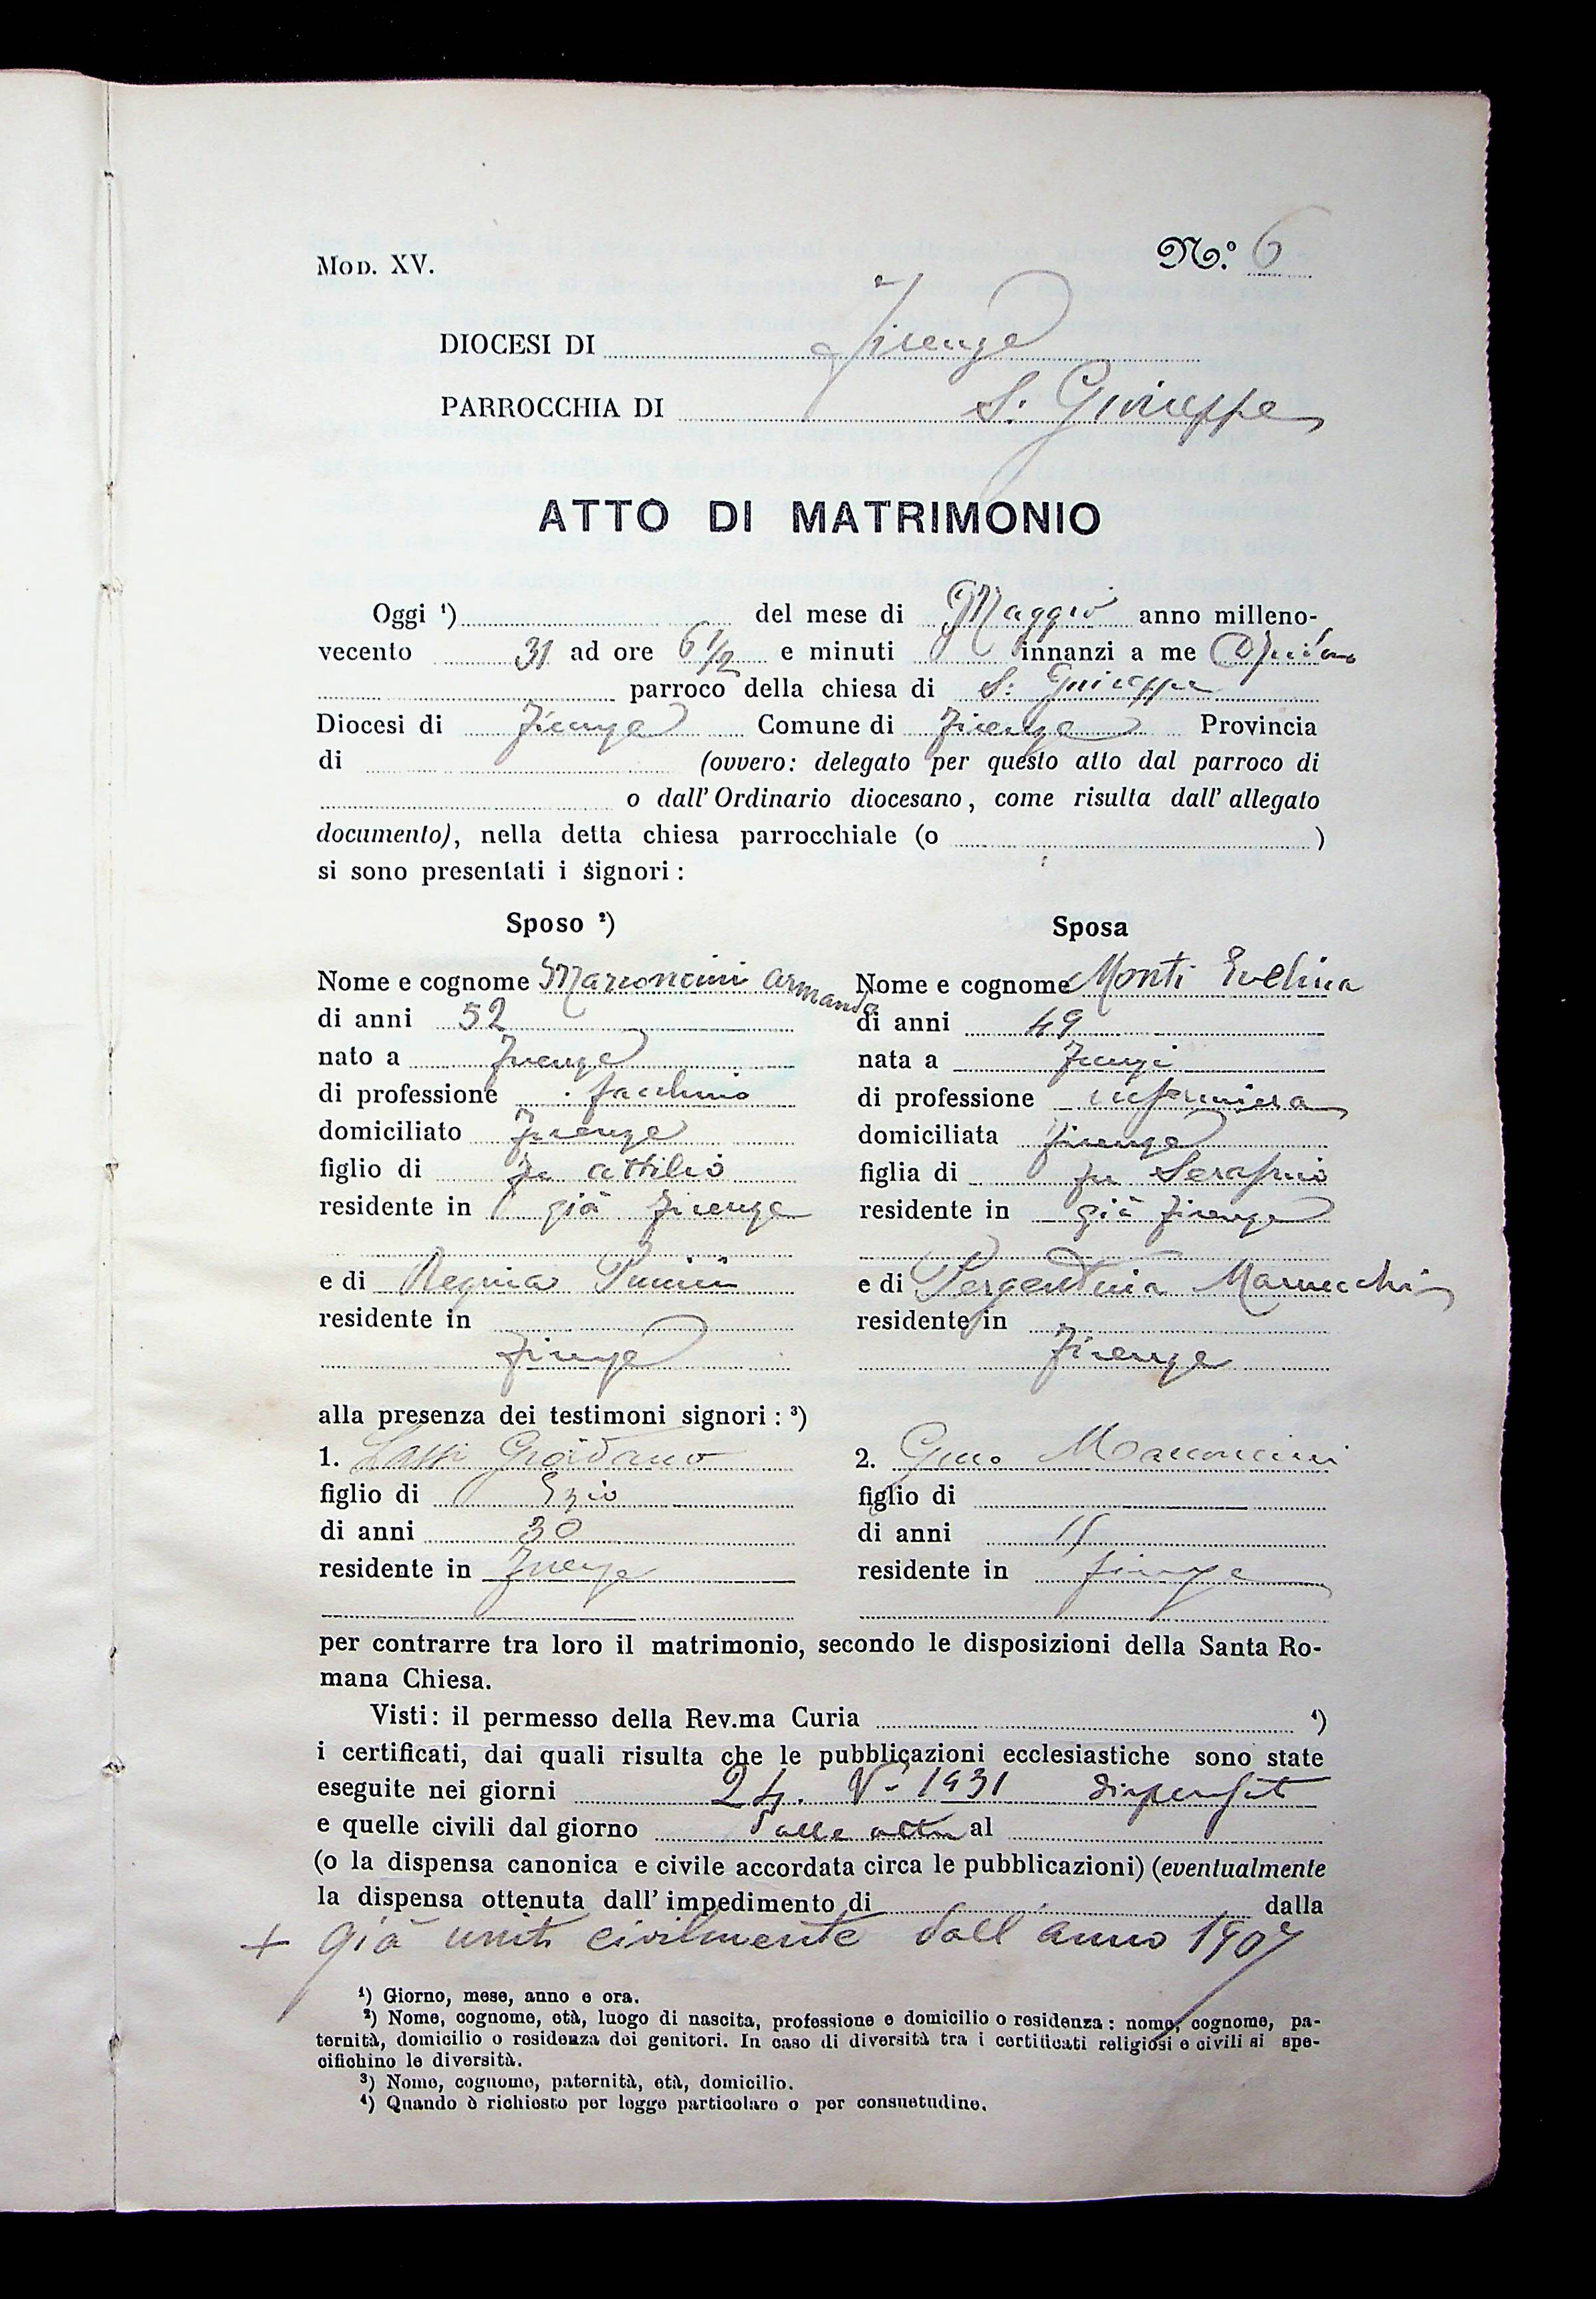 Mod. XV.
N.º 6
DIOCESI DI Firenze
PARROCCHIA DI S. Giuseppe
ATTO DI MATRIMONIO
Oggi ¹) del mese di Maggio anno milleno-
vecento 31 ad ore 6 1/2 e minuti innanzi a me
parroco della chiesa di S. Giuseppe
Diocesi di Firenze Comune di Firenze Provincia
di (ovvero: delegato per questo atto dal parroco di
o dall' Ordinario diocesano, come risulta dall' allegato
documento), nella detta chiesa parrocchiale (o )
si sono presentati i signori:
Sposo ²)
Nome e cognome Marconcini Armando
di anni 52
nato a Firenze
di professione facchino
domiciliato Firenze
figlio di fu Attilio
residente in già Firenze
e di Regina Pucini
residente in
Firenze
Sposa
Nome e cognome Monti Evelina
di anni 49
nata a Firenze
di professione infermiera
domiciliata Firenze
figlia di fu Serafino
residente in già Firenze
e di Pergentina Marucchi
residente in
Firenze
alla presenza dei testimoni signori: ³)
1. Lassi Giordano
figlio di Ezio
di anni 30
residente in Firenze
2. Gino Marconcini
figlio di
di anni
residente in Firenze
per contrarre tra loro il matrimonio, secondo le disposizioni della Santa Ro-
mana Chiesa.
Visti: il permesso della Rev.ma Curia ⁴)
i certificati, dai quali risulta che le pubblicazioni ecclesiastiche sono state
eseguite nei giorni 24. V - 1931 dispensati
e quelle civili dal giorno dalle altre al
(o la dispensa canonica e civile accordata circa le pubblicazioni) (eventualmente
la dispensa ottenuta dall' impedimento di dalla
+ già uniti civilmente dall'anno 1907
¹) Giorno, mese, anno e ora.
²) Nome, cognome, età, luogo di nascita, professione e domicilio o residenza: nome, cognome, pa-
ternità, domicilio o residenza dei genitori. In caso di diversità tra i certificati religiosi e civili si spe-
cifichino le diversità.
³) Nome, cognome, paternità, età, domicilio.
⁴) Quando è richiesto per legge particolare o per consuetudine.